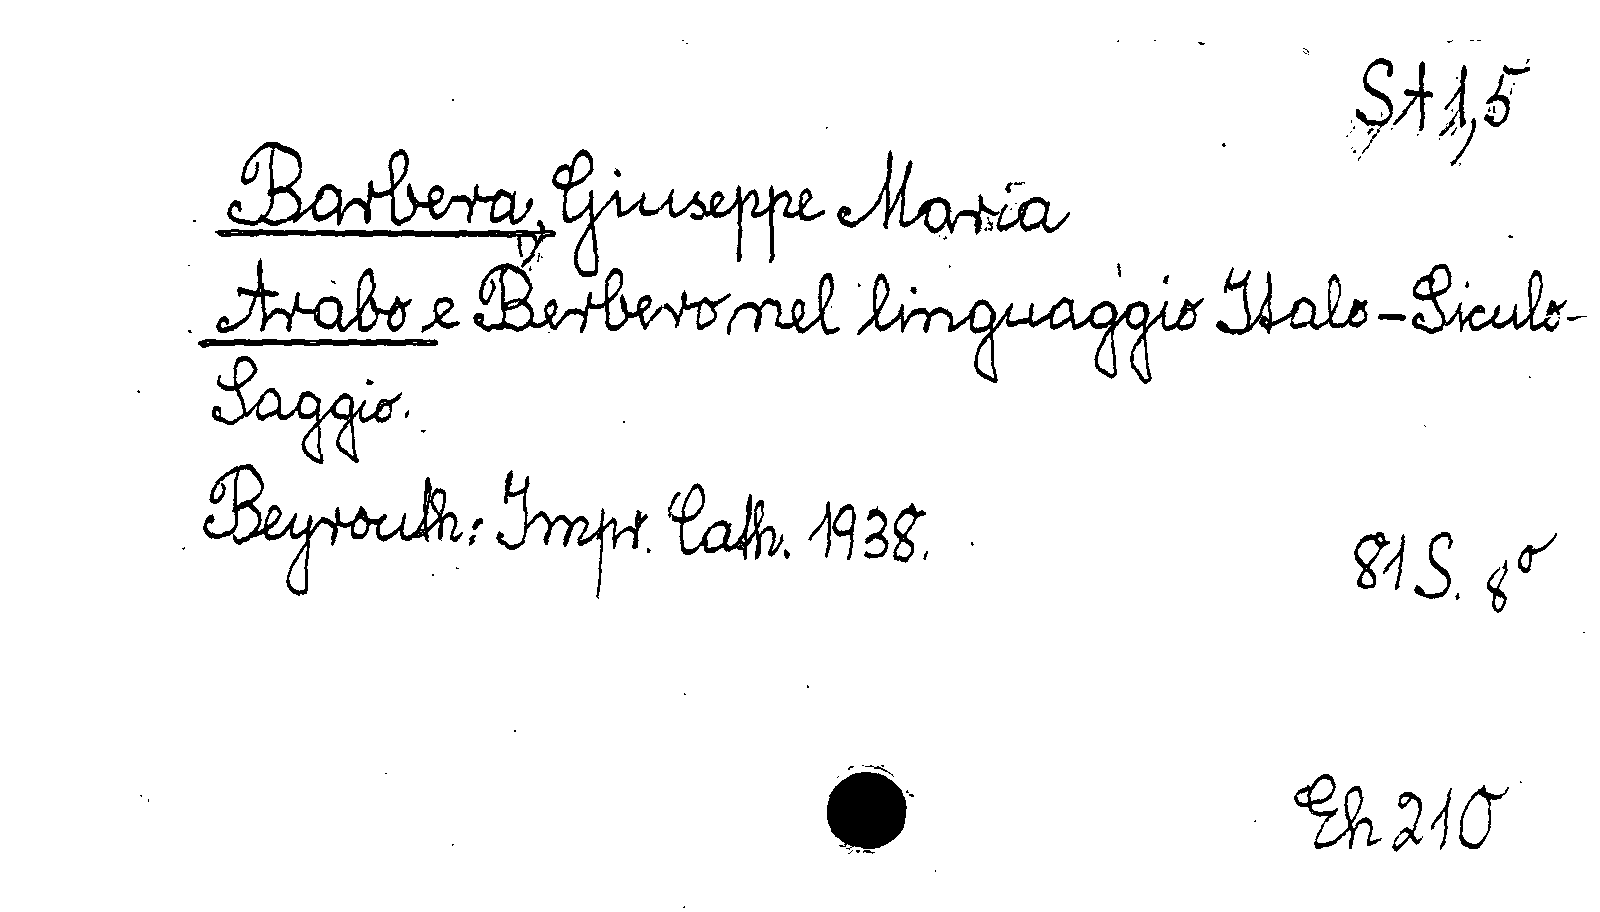 St 1,5
Barbera, Giuseppe Maria
Arabo e Berbero nel linguaggio Italo-Siculo-
Saggio.
Beyrouth: Impr. Cath. 1938.
81 S. 8°
Eh 210